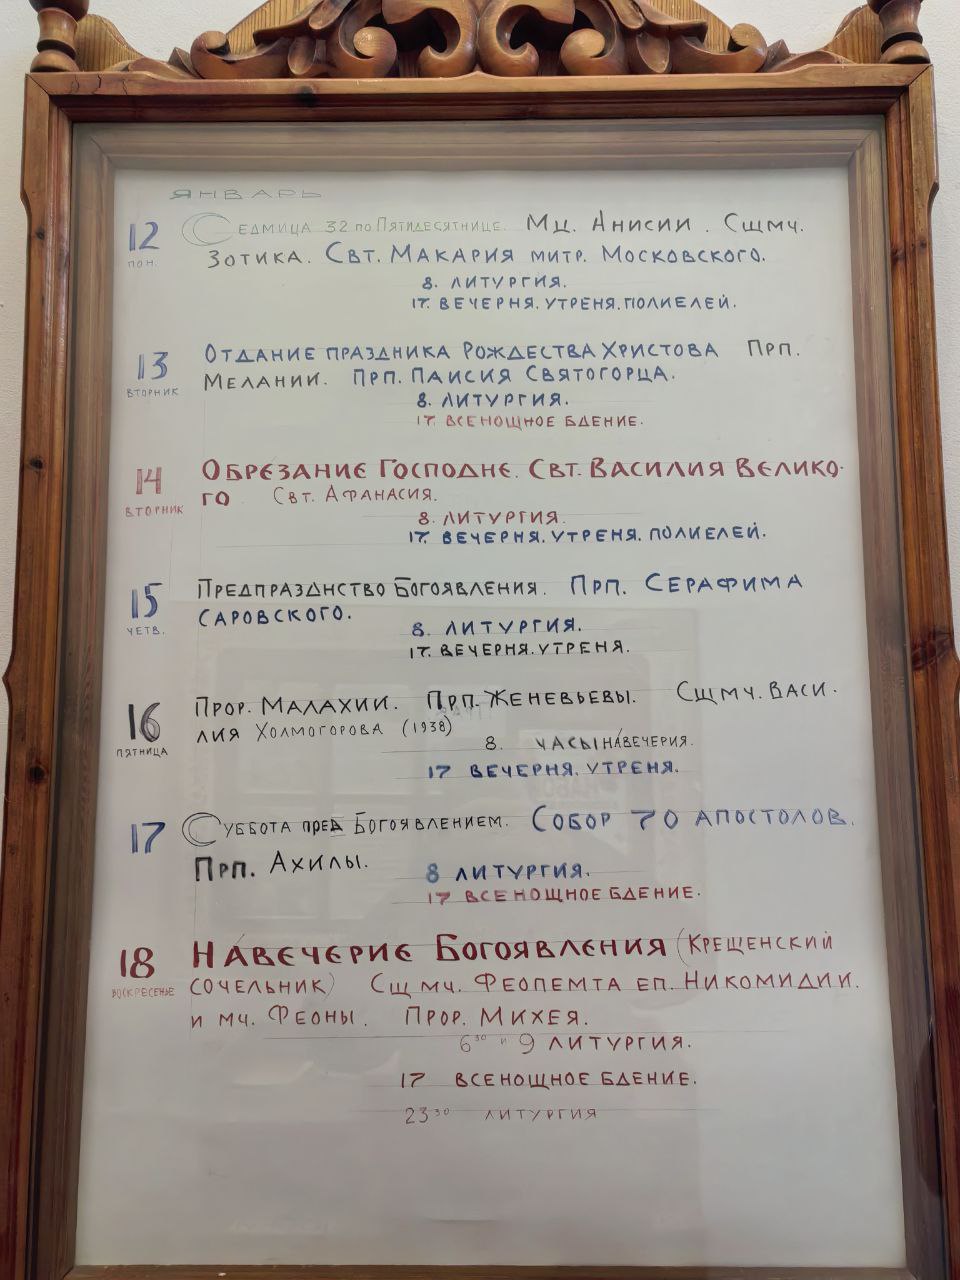 ЯНВАРЬ
12 СЕДМИЦА 32 ПО ПЯТИДЕСЯТНИЦЕ. МЦ. АНИСИИ. СЩМЧ.
ПОН. ЗОТИКА. СВТ. МАКАРИЯ МИТР. МОСКОВСКОГО.
8. ЛИТУРГИЯ.
17. ВЕЧЕРНЯ. УТРЕНЯ. ПОЛИЕЛЕЙ.
13 ОТДАНИЕ ПРАЗДНИКА РОЖДЕСТВА ХРИСТОВА ПРП.
ВТОРНИК МЕЛАНИИ. ПРП. ПАИСИЯ СВЯТОГОРЦА.
8. ЛИТУРГИЯ.
17. ВСЕНОЩНОЕ БДЕНИЕ.
14 ОБРЕЗАНИЕ ГОСПОДНЕ. СВТ. ВАСИЛИЯ ВЕЛИКО-
ВТОРНИК ГО СВТ. АФАНАСИЯ.
8. ЛИТУРГИЯ.
17. ВЕЧЕРНЯ. УТРЕНЯ. ПОЛИЕЛЕЙ.
15 ПРЕДПРАЗДНСТВО БОГОЯВЛЕНИЯ. ПРП. СЕРАФИМА
ЧЕТВ. САРОВСКОГО.
8. ЛИТУРГИЯ.
17. ВЕЧЕРНЯ. УТРЕНЯ.
16 ПРОР. МАЛАХИИ. ПРП. ЖЕНЕВЬЕВЫ. СЩМЧ. ВАСИ-
ПЯТНИЦА ЛИЯ ХОЛМОГОРОВА (1938)
8. ЧАСЫ НАВЕЧЕРИЯ.
17 ВЕЧЕРНЯ. УТРЕНЯ.
17 СУББОТА ПРЕД БОГОЯВЛЕНИЕМ. СОБОР 70 АПОСТОЛОВ.
ПРП. АХИЛЫ.
8 ЛИТУРГИЯ.
17 ВСЕНОЩНОЕ БДЕНИЕ.
18 НАВЕЧЕРИЕ БОГОЯВЛЕНИЯ (КРЕЩЕНСКИЙ
ВОСКРЕСЕНЬЕ СОЧЕЛЬНИК) СЩМЧ. ФЕОПЕМТА ЕП. НИКОМИДИИ.
И МЧ. ФЕОНЫ. ПРОР. МИХЕЯ.
6³⁰ и 9 ЛИТУРГИЯ.
17 ВСЕНОЩНОЕ БДЕНИЕ.
23³⁰ ЛИТУРГИЯ